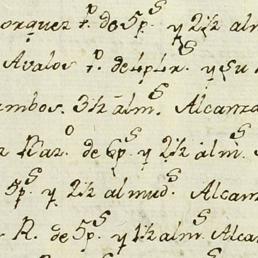 orquez r.º de 5p.s y 2½ alm
Avalos r.º de 4p4r. y su
ambos. 3½ alm.s Alcanza
z Raz.º de 6p.s y 2½ alm.s
5p.s y 2½ almud.s Alcan
R. de 5p.s y 1½ alm.s Alcan